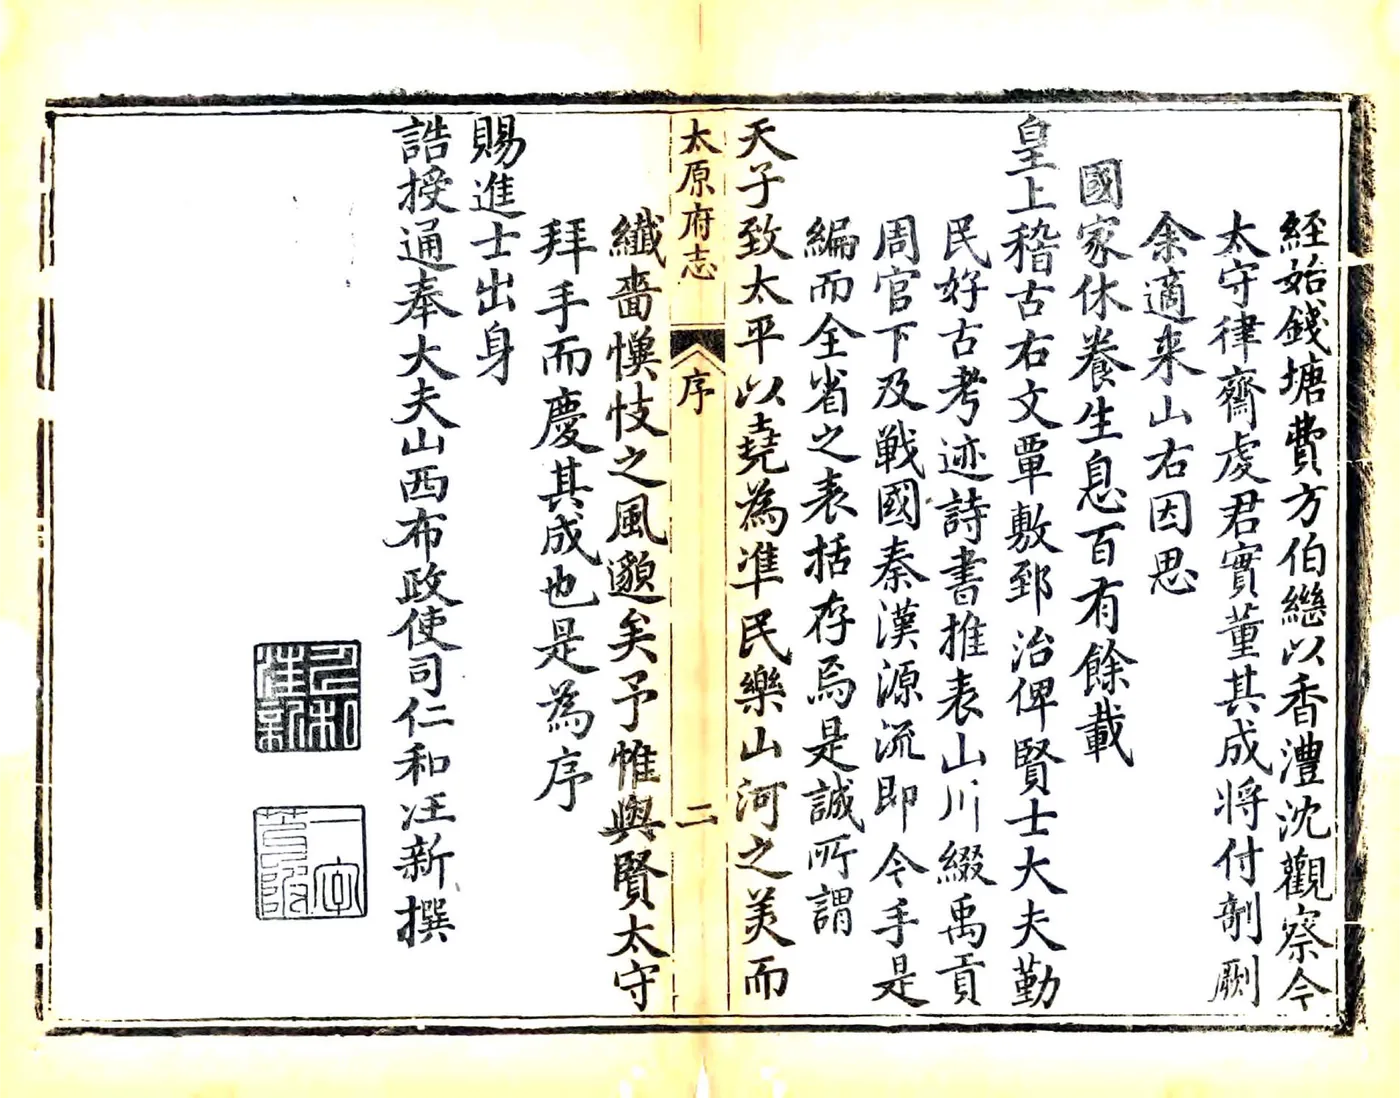 經始錢塘費方伯繼以香澧沈觀察今
太守律齋虔君實董其成將付剞劂
余適来山右因思
國家休養生息百有餘載
皇上稽古右文覃敷郅治俾賢士大夫勤
民好古考迹詩書推表山川綴禹貢
周官下及戰國秦漢源流即今手是
編而全省之表括存焉是誠所謂
天子致太平以堯為準民樂山河之美而
太原府志
序
二
纖嗇懻忮之風邈矣予惟與賢太守
拜手而慶其成也是為序
賜進士出身
誥授通奉大夫山西布政使司仁和汪新撰
仁和汪新